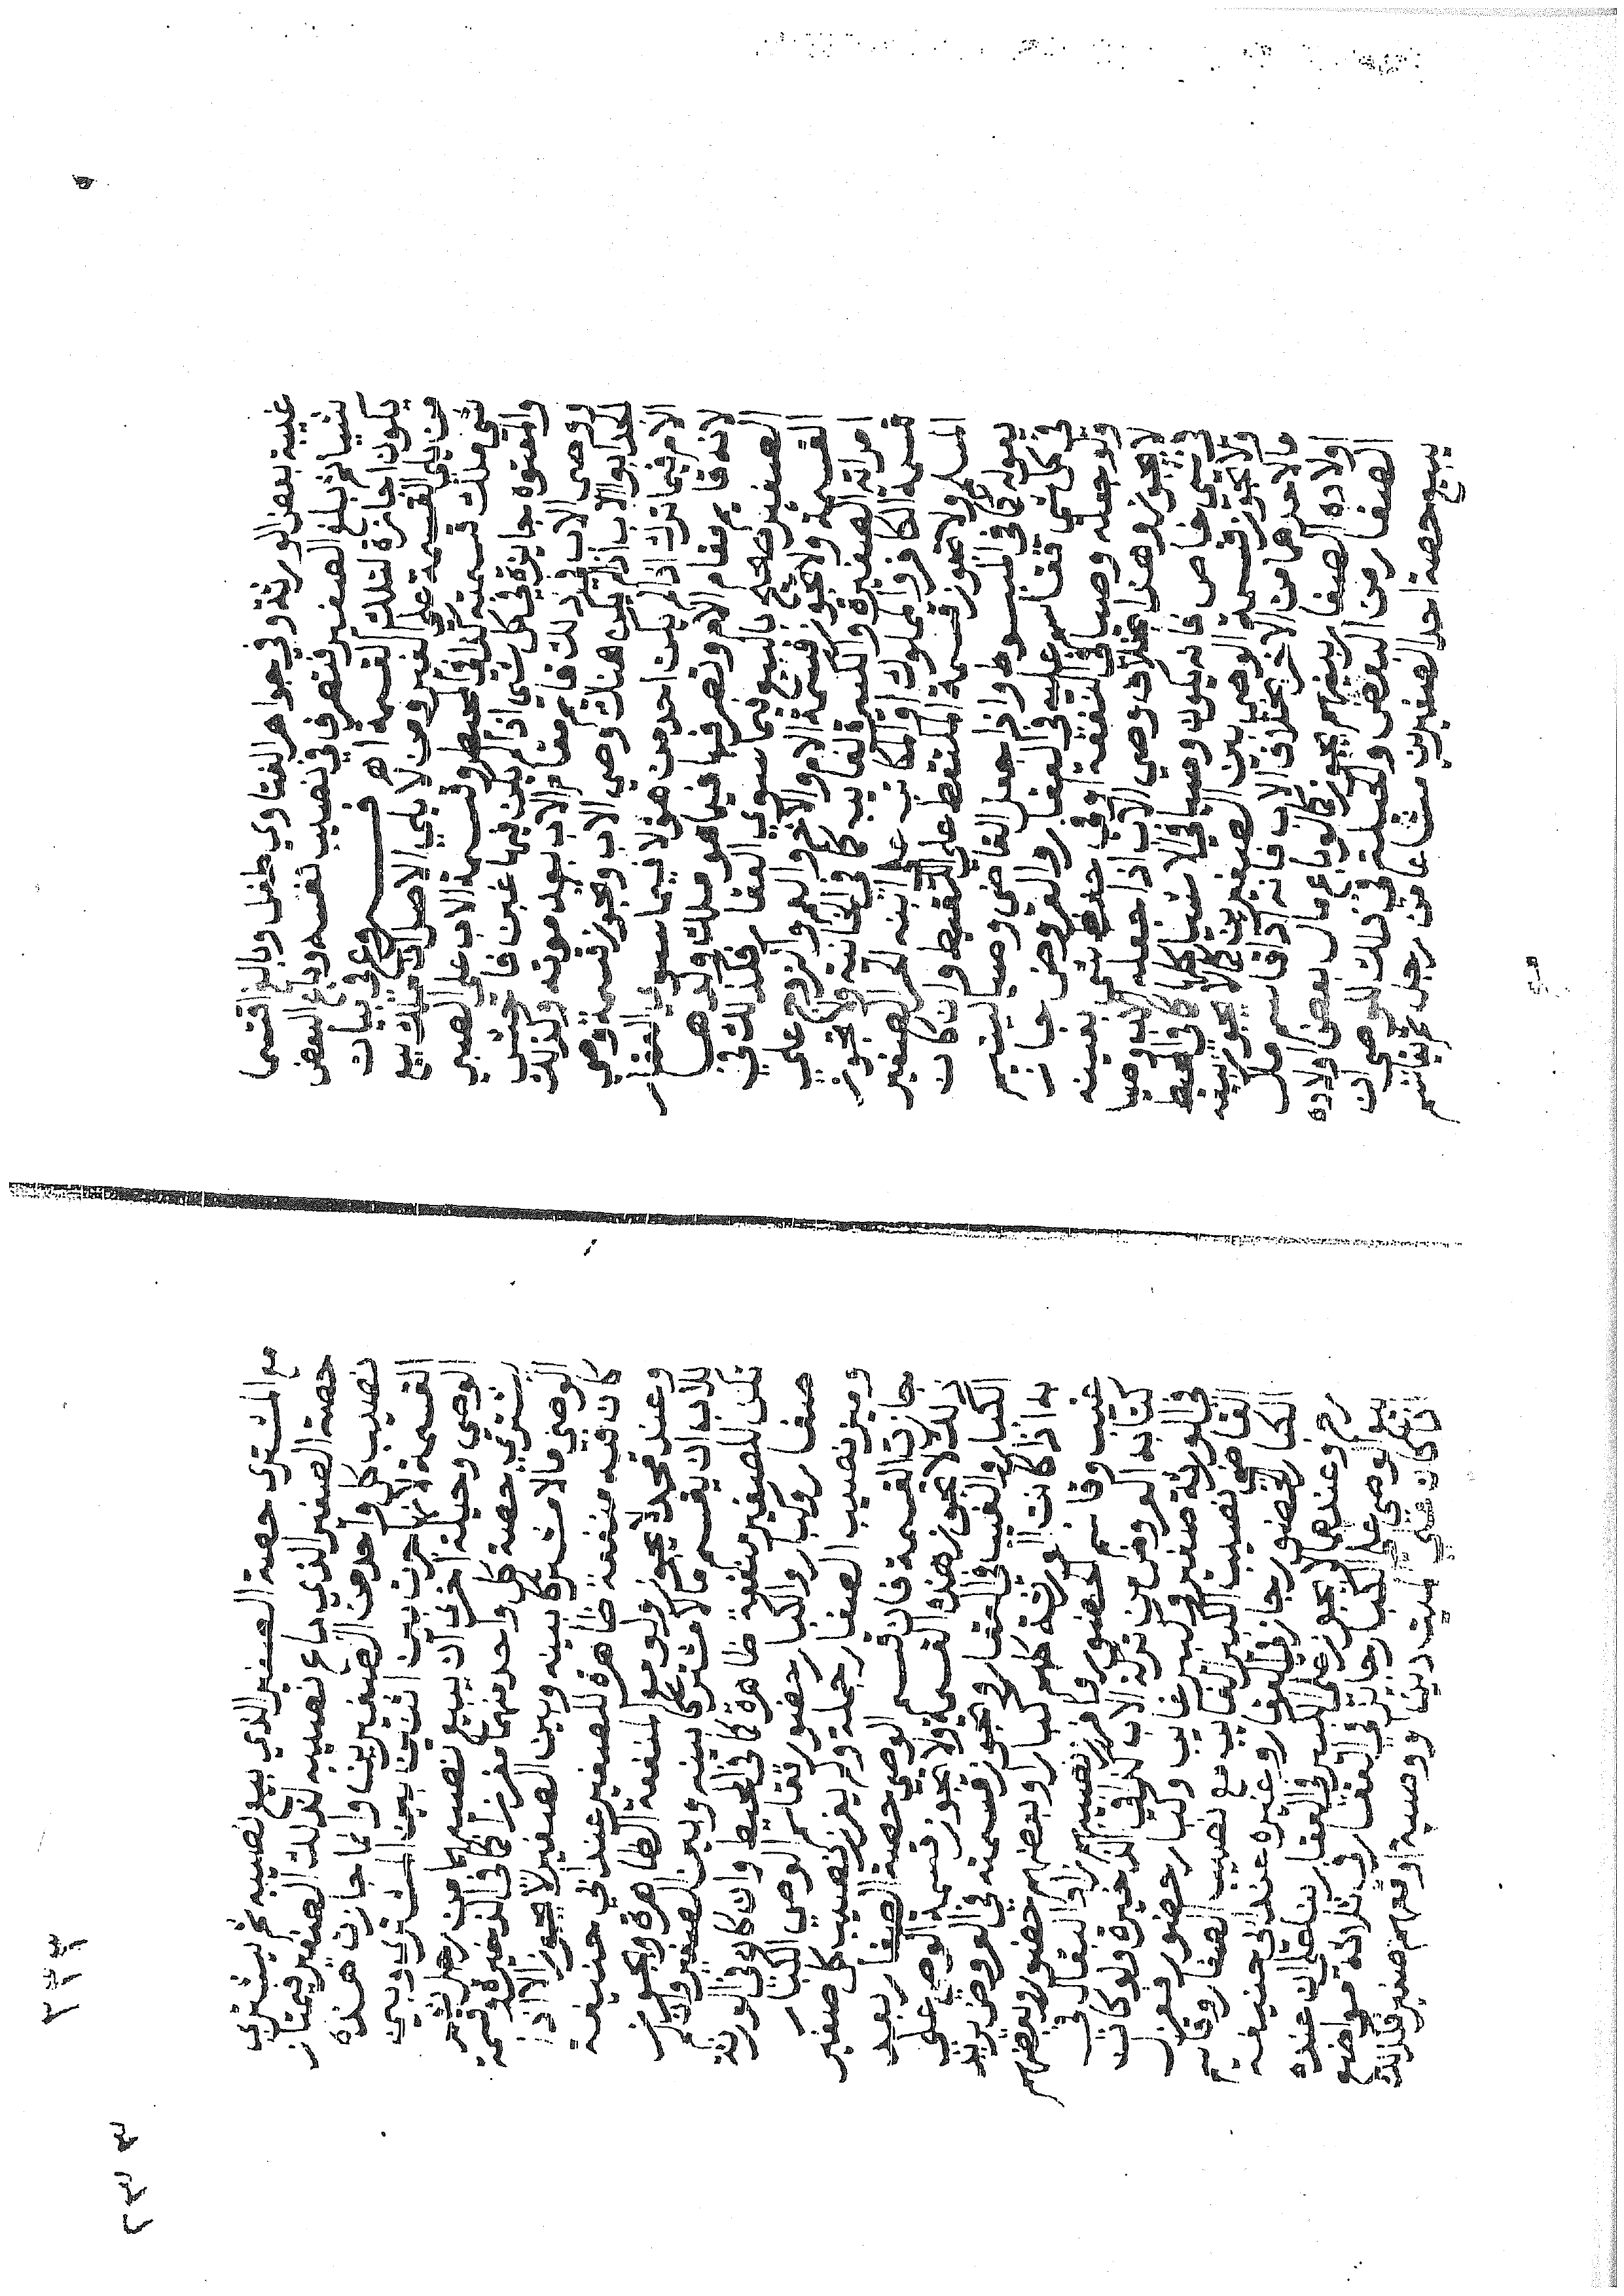 غيبة بعض الورثة وفي جواهر الفتاوي طفل وبالغ اقتسما
شيا ثم بلغ الصغير فتصرف في نصيب نفسه وباع البعض
يكون اجازة لتلك القسمة اهـ فــــروع في بيان
من يلي القسمة علي الغير ومن لا يلي الاصل ان من ملك بيع
شي ملك قسمته كذا في المحيط وقسمة الاب علي الصبي
والمعتوه جايزة في كل شي اذا لم يكن فيها غبن فاحش
ووصي الاب في ذلك قايم مقام الاب بعد موته وكذلك
الجد ابو الاب اذا لم يكن هناك وصي الاب وتجوز قسمة وصي
الام فيما ترك اذا لم يكن احد من هولا فيما سوي العقار
لانه قايم مقام الام وتصرفها فيما هو ملك ولدها
الصغير صحيح بالبيع فيما سوي العقار فكذلك في
القسمة ولا يجوز قسمة الام والاخ والعم والزوج علي
امراته الصغيرة والكبيرة الغايب كما في الخانية ولا تجوز
قسمة الكافر والمملوك او المكاتب علي ابنه الحر الصغير
المسلم ولا تجوز قسمة الملتقط علي اللقيط وان كان
يعوله كما في المبسوط واذا جعل القاضي وصيا ليتيم
في كل شي فقاسم عليه في العقار والعروض جاز
ولو جعله وصيا في النفقة او في حفظ شي بعينه
لا يجوز وهذا بخلاف وصي الاب اذا جعله الاب وصيا
في شي خاص فانه يكون وصيا في الاشيا كلها كما في المحيط
ولا تجوز قسمة الوصي بين الصغيرين كما لا يجوز بيعه
مال احدهما من الاخر بخلاف الاب فانه اذا قاسم مال
اولاده الصغار بينهم يجوز كما لو باع مال بعض اولاده
الصغار من البعض والحيلة في ذلك للوصي ان
يبيع حصة احد الصغيرين مشاعا من رجل ثم يقاسم
مع المشتري حصة الصغير الذي يبيع نصيبه ثم يشتري
حصة الصغير الذي باع نصيبه لذلك الصغير فيمتاز
نصيب كل واحد من الصغيرين وانما جازت هذه
القسمة لانها جرت بين اثنين بين المشتري وبين
الوصي وحيلة اخري ان يبيع نصيبهما من رجل ثم
يشتري حصة كل واحد منهما مفرزا كما في الذخيرة وقسمة
الوصي مالا مشتركا بينه وبين الصغير لا تجوز الا اذا
كان فيه منفعة ظاهرة للصغير عند ابي حنيفة
وعند محمد لا يجوز ولو مع المنفعة الظاهرة ويجوز
للاب ان يقسم مالا مشتركا بينه وبين الصغير وان لم
تكن للصغير منفعة ظاهرة كما في المحيط وان كان في الورثة
صغار وكبار والكبار حضور فقاسم الوصي الكبار
وميز نصيب الصغار جملة ولم يفرز نصيب كل صغير
جازت القسمة فان قسم الوصي حصة الصغار بعد
ذلك لا يجوز هذه القسمة ولا يجوز قسمة الوصي علي
الكبار والغيب في العقار وتجوز قسمته في العروض يريد
به اذا كانت الورثة كلهم كبارا وبعضهم حضور وبعضهم
غيب وقاسم الحضور وافرز نصيبهم زاد البقالي في
كتابه العروض من تركة الاب كذا في الذخيرة ولو كان
في الورثة صغير وكبير غايب وكبار حضور فعزل
القاضي نصيب الكبير الغايب مع نصيب الصغار وقاسم
الكبار الحضور جاز في العقار وغيره عند ابي حنيفة
رح وعندهما لا يجوز علي الكبير في العقار بنا علي ان عنده
بيع الوصي علي الكبار جايز في العقار في ثلاثة مواضع
ان كان علي الميت دين او وصية او معهم صغير فكذلك